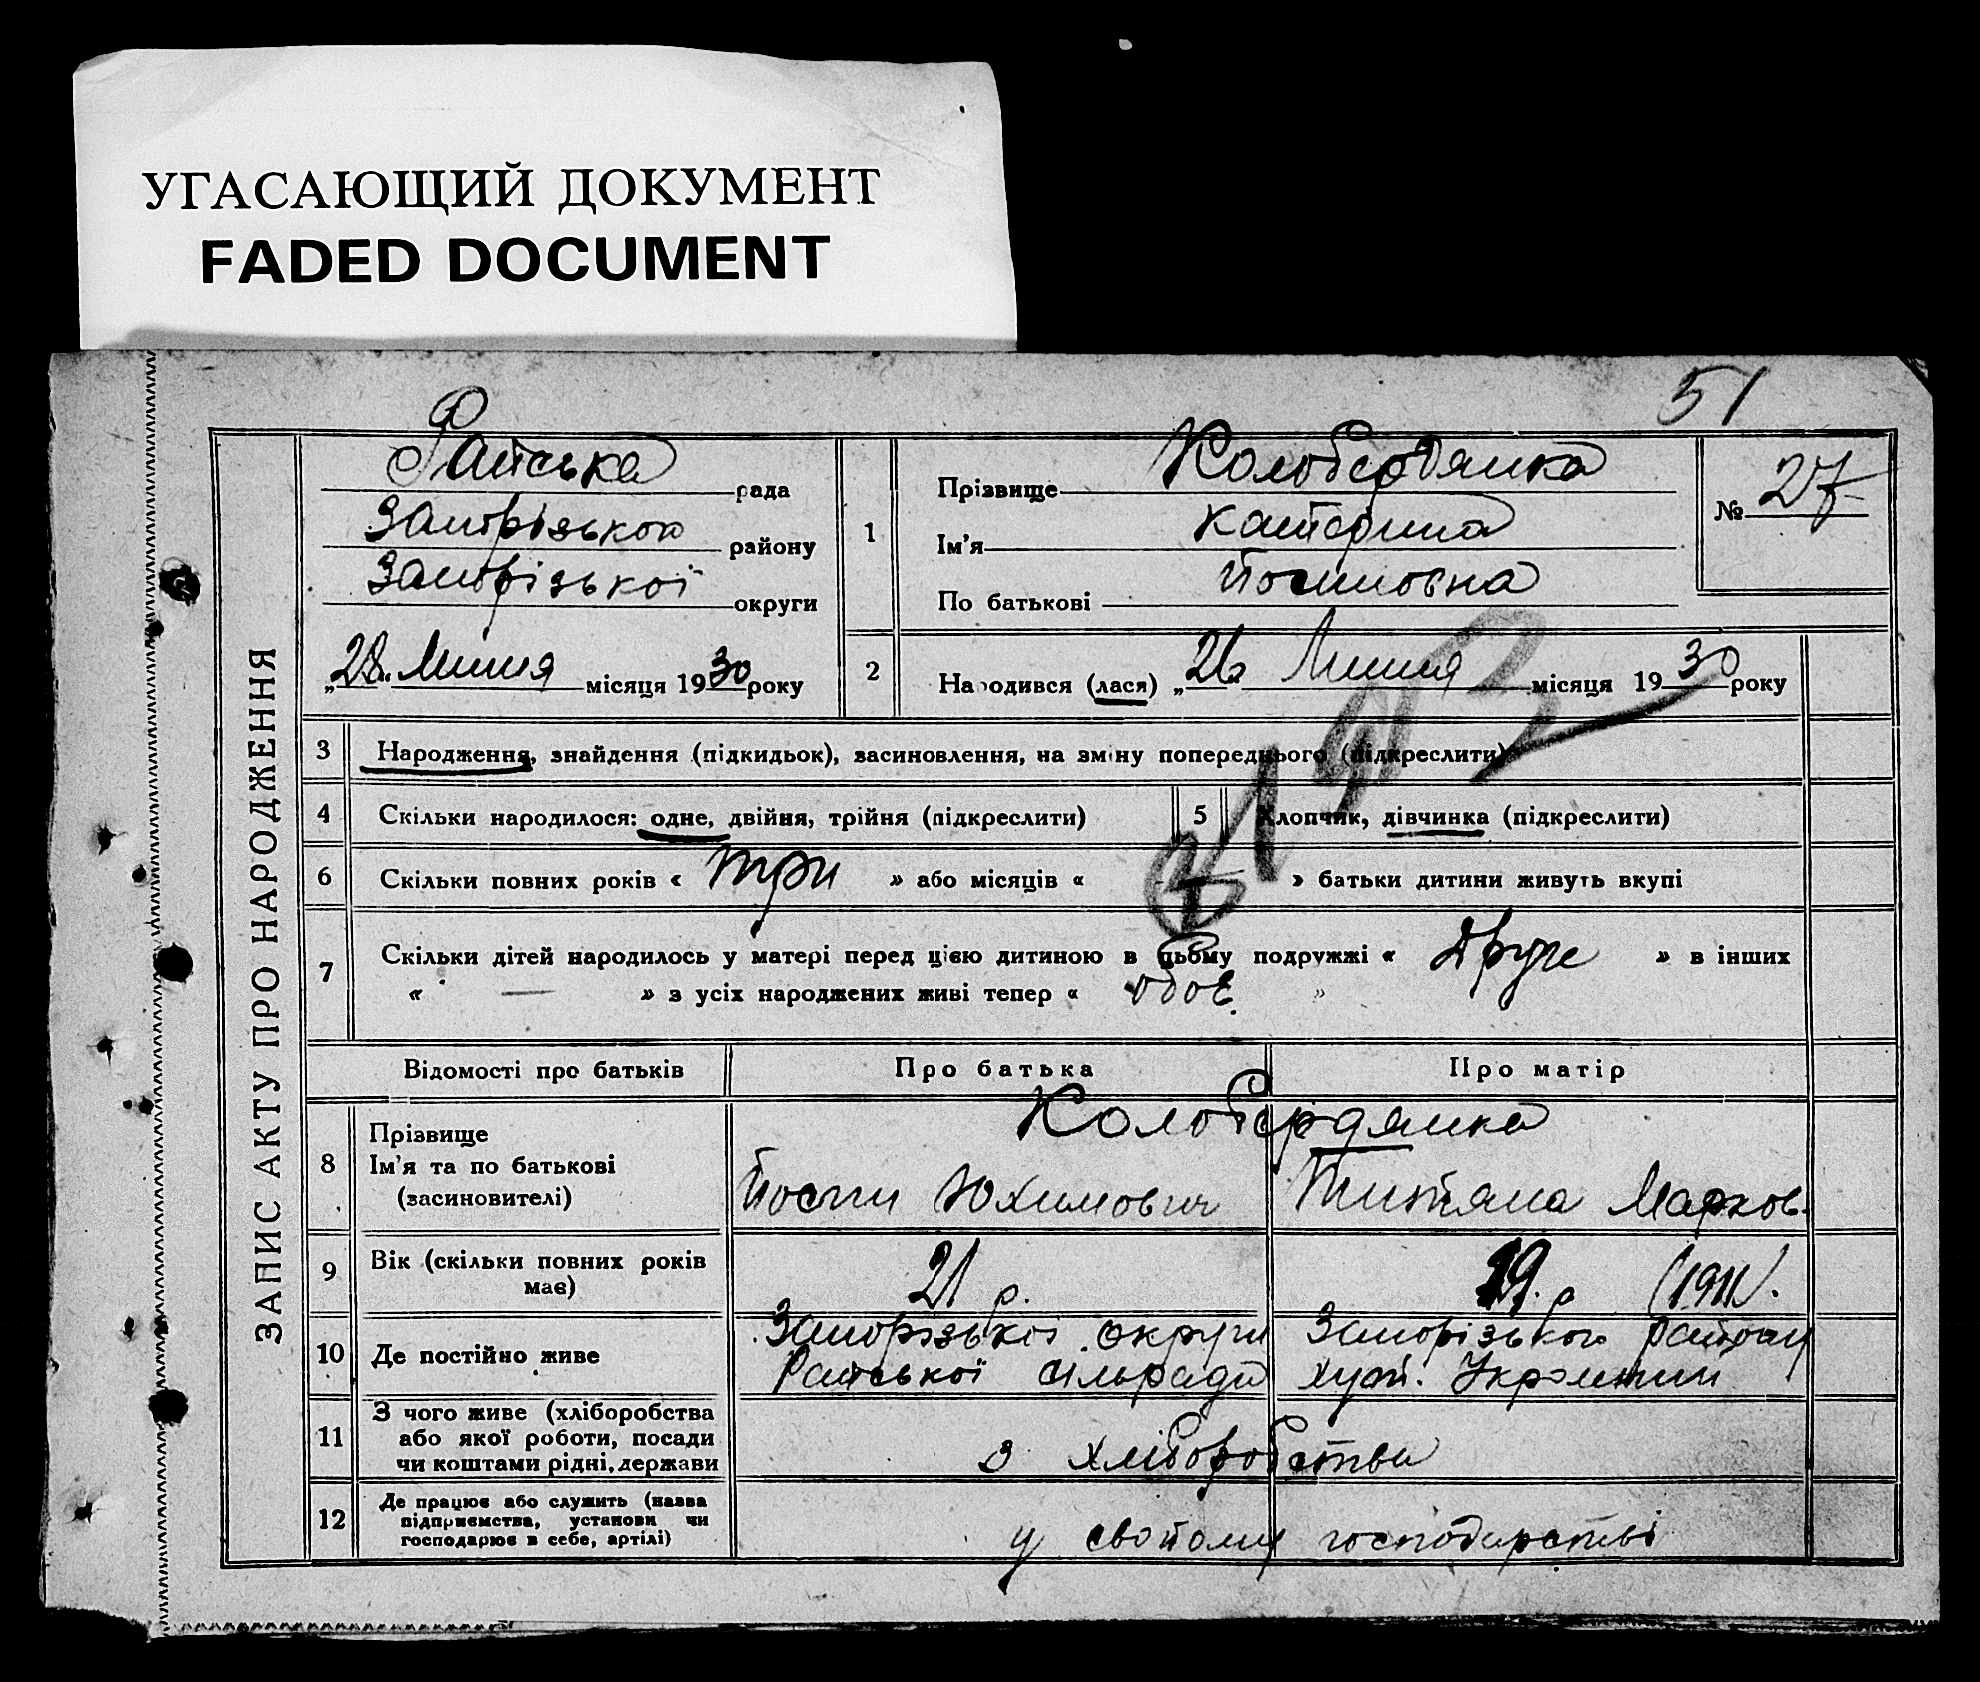 УГАСАЮЩИЙ ДОКУМЕНТ
FADED DOCUMENT
51
ЗАПИС АКТУ ПРО НАРОДЖЕННЯ
Райська рада
Запорізького району
Запорізької округи
„28" Липня місяця 1930 року
1
Прізвище Колобердянка
Ім'я Катерина
По батькові Йосиповна
№ 27
2
Народився (лася) „26" Липня місяця 1930 року
3 Народження, знайдення (підкидьок), засиновлення, на зміну попереднього (підкреслити)
4 Скільки народилося: одне, двійня, трійня (підкреслити)
5 Хлопчик, дівчинка (підкреслити)
6 Скільки повних років « три » або місяців « — » батьки дитини живуть вкупі
7 Скільки дітей народилось у матері перед цією дитиною в цьому подружжі « Друге » в інших
« — » з усіх народжених живі тепер « обоє »
Відомості про батьків Про батька Про матір
8 Прізвище
Ім'я та по батькові
(засиновителі)
Колобердянка
Йосип Юхимович Титяна Марков.
9 Вік (скільки повних років
має)
21 р. 19. р (1911).
10 Де постійно живе
Запорізької округи Запорізького району
Райської сільради хут.
11 З чого живе (хліборобства
або якої роботи, посади
чи коштами рідні, держави
з хліборобства
12 Де працює або служить (назва
підприємства, установи чи
господарює в себе, артілі)
у свойому господарстві